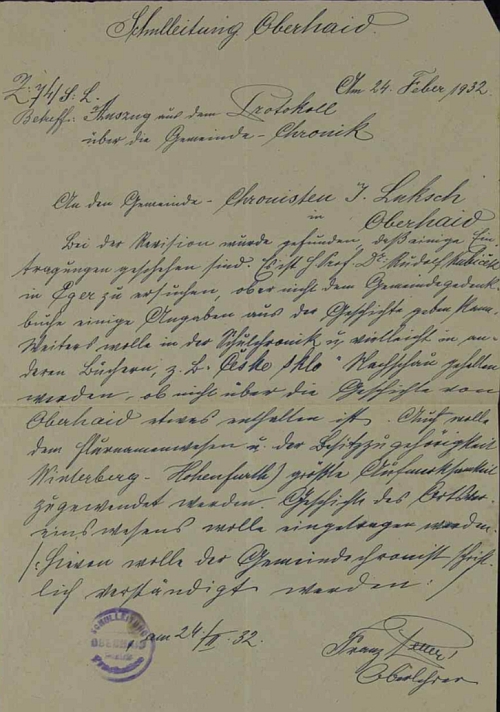 Schulleitung Oberhaid.
Am 24. Feber 1932.
Z: 74/S. L.
Betreff: Auszug aus dem Protokoll
über die Gemeinde-Chronik
An den Gemeinde-Chronisten J. Luksch
in
Oberhaid
Bei der Revision wurde gefunden, daß einige Ein-
tragungen geschehen sind. Es ist H. Prof. Dr. Rudolf Kubitschek
in Eger zu ersuchen, ob er nicht dem Gemeindegedenk-
buche einige Angaben aus der Geschichte geben kann.
Weiters wolle in der Schulchronik u. vielleicht in an-
deren Büchern, z. B. "Česke sklo" Nachschau gehalten
werden, ob nicht über die Geschichte von
Oberhaid etwas enthalten ist. Auch wolle
dem Flurnamenwesen u. der Besitzzugehörigkeit
Winterberg - Hohenfurth) größte Aufmerksamkeit
zugewendet werden. Geschichte des Ortsver-
einswesens wolle eingetragen werden.
/: Hievon wolle der Gemeindechronist schrift-
lich verständigt werden :/
am 24/II. 32.
SCHULLEITUNG
OBERHAID
Franz
Oberlehrer